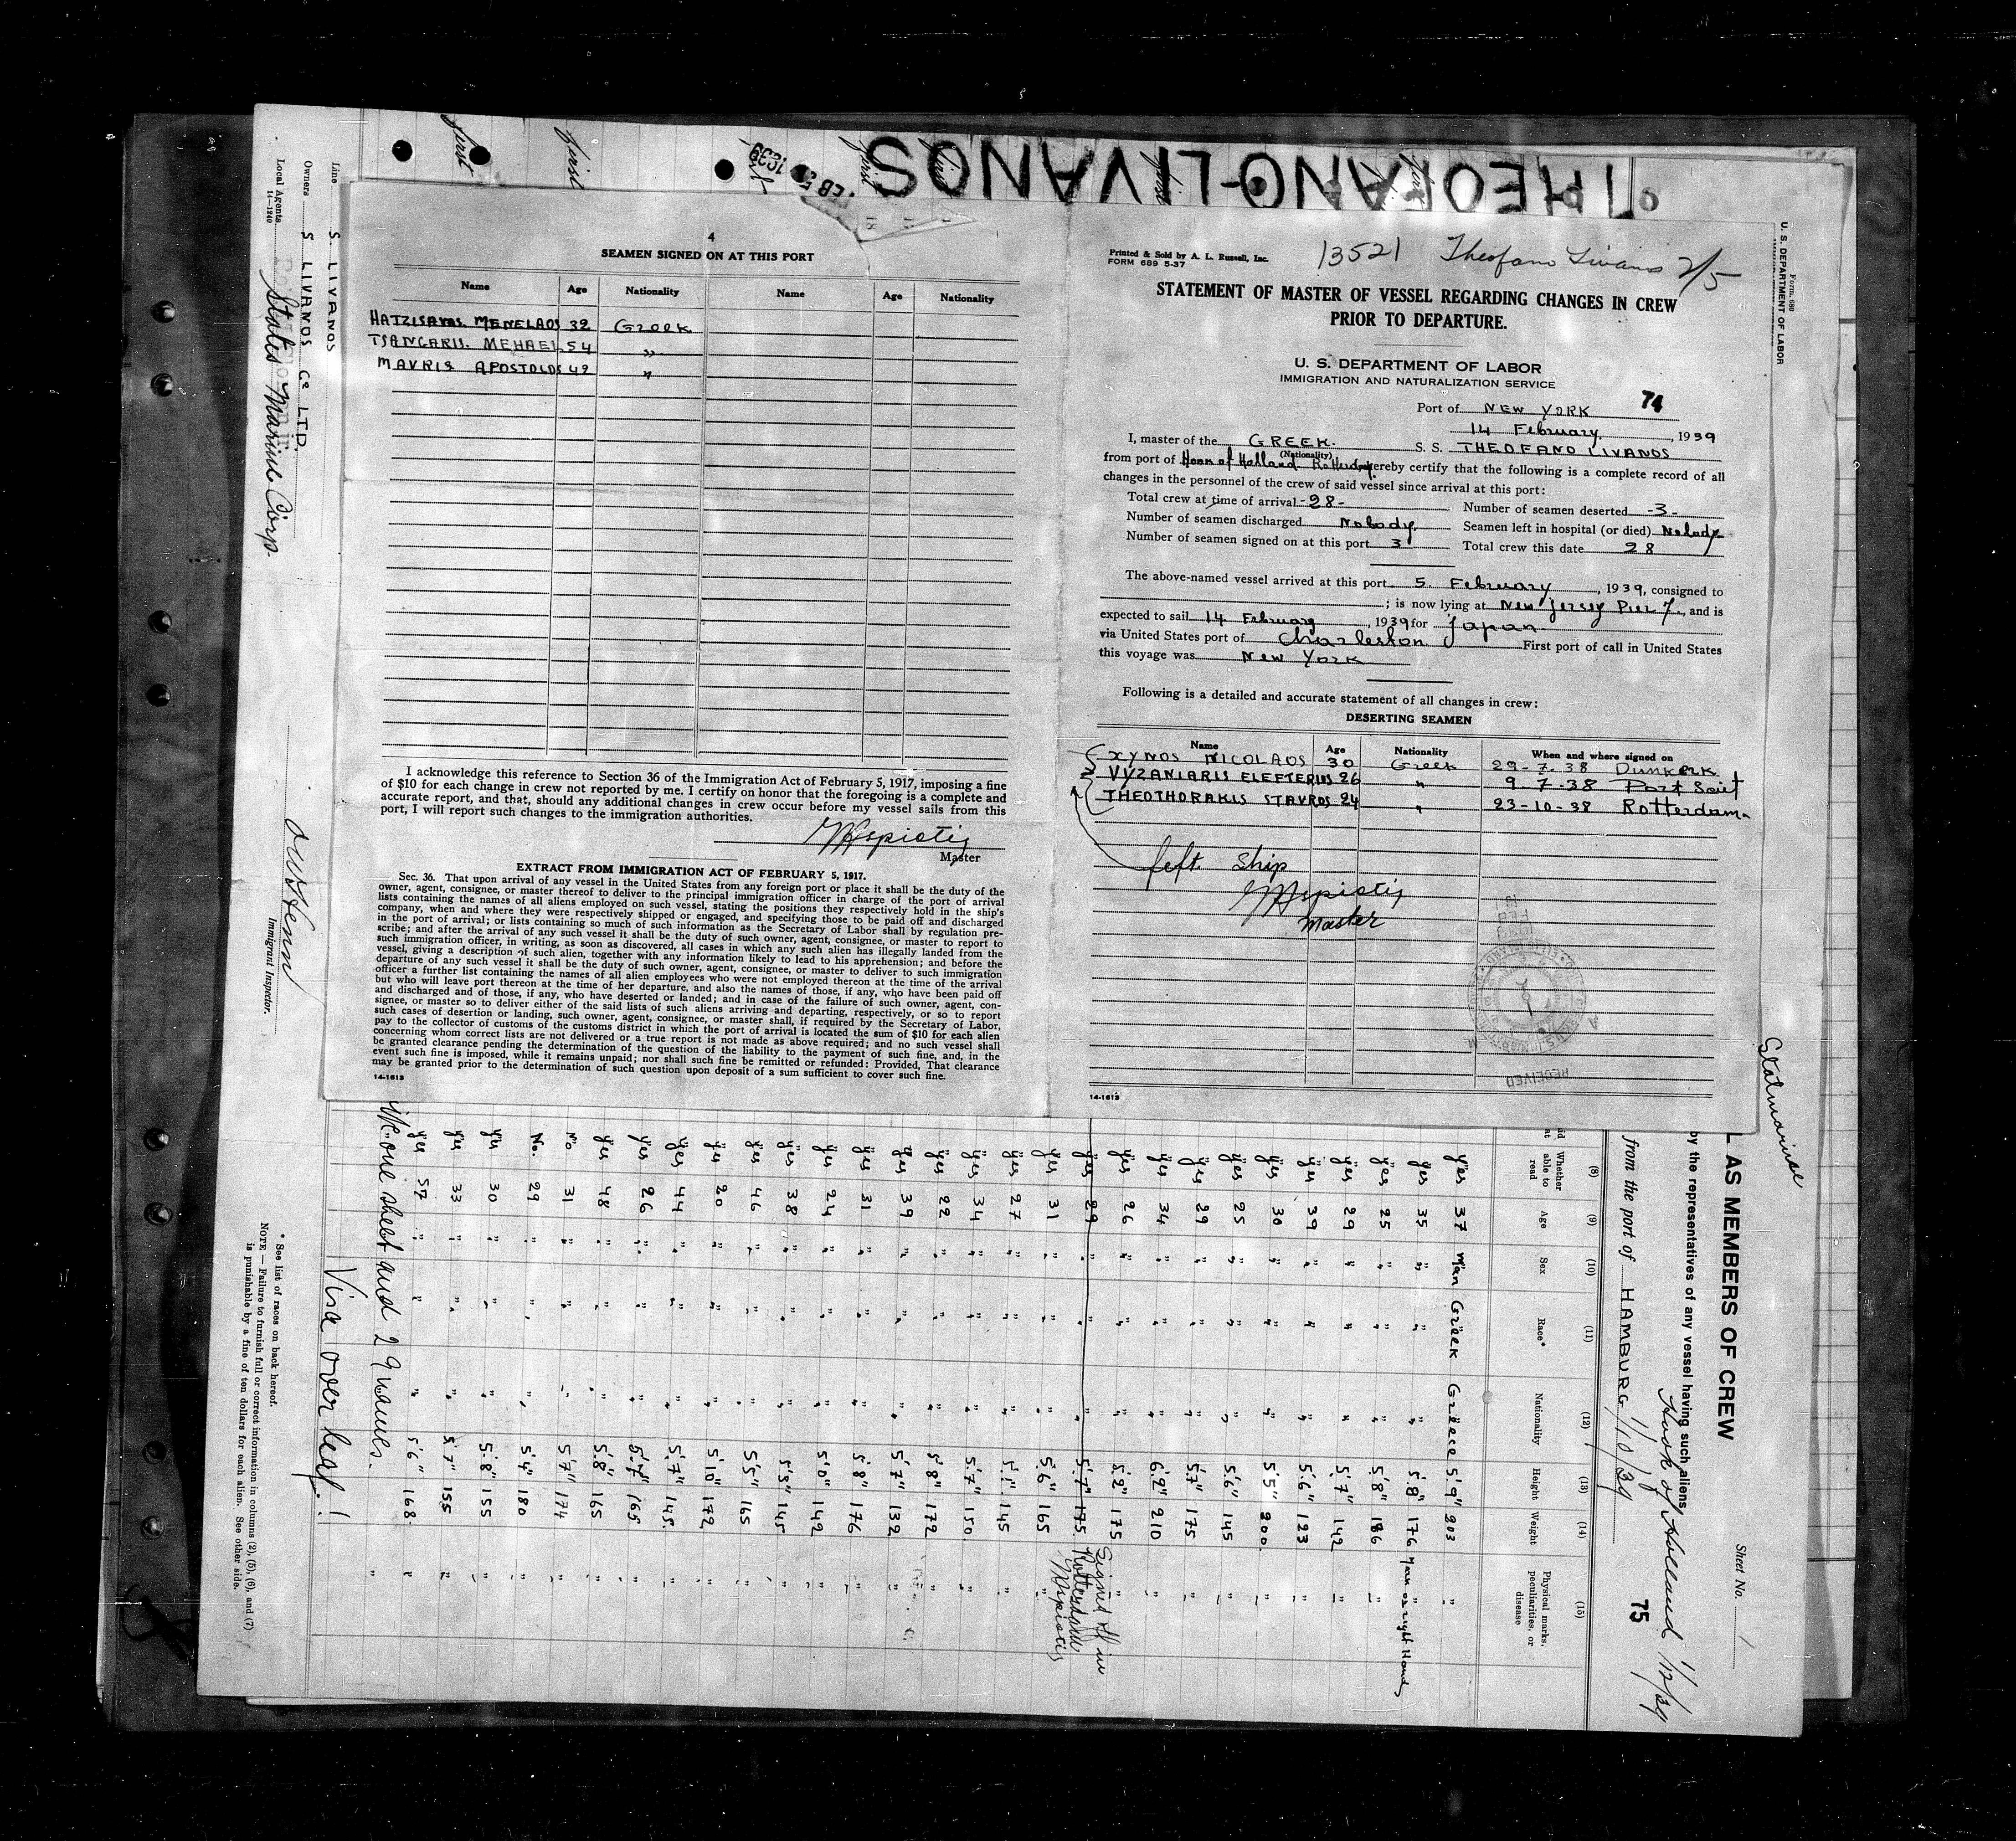 THEOFANO LIVANOS
FEB 5 1939
first
first
Line S. LIVANOS
Owners S LIVANOS Co LTD.
Local Agents States Marine Corp.
14-1240
Immigrant Inspector.
4
SEAMEN SIGNED ON AT THIS PORT
Name Age Nationality Name Age Nationality
HATZISAVAS MENELAOS 32 Greek
TSANGARIS. MEHAEL 54 "
MAVRIS APOSTOLOS 42 "
I acknowledge this reference to Section 36 of the Immigration Act of February 5, 1917, imposing a fine
of $10 for each change in crew not reported by me. I certify on honor that the foregoing is a complete and
accurate report, and that, should any additional changes in crew occur before my vessel sails from this
port, I will report such changes to the immigration authorities.
Master
EXTRACT FROM IMMIGRATION ACT OF FEBRUARY 5, 1917.
Sec. 36. That upon arrival of any vessel in the United States from any foreign port or place it shall be the duty of the
owner, agent, consignee, or master thereof to deliver to the principal immigration officer in charge of the port of arrival
lists containing the names of all aliens employed on such vessel, stating the positions they respectively hold in the ship's
company, when and where they were respectively shipped or engaged, and specifying those to be paid off and discharged
in the port of arrival; or lists containing so much of such information as the Secretary of Labor shall by regulation pre-
scribe; and after the arrival of any such vessel it shall be the duty of such owner, agent, consignee, or master to report to
such immigration officer, in writing, as soon as discovered, all cases in which any such alien has illegally landed from the
vessel, giving a description of such alien, together with any information likely to lead to his apprehension; and before the
departure of any such vessel it shall be the duty of such owner, agent, consignee, or master to deliver to such immigration
officer a further list containing the names of all alien employees who were not employed thereon at the time of the arrival
but who will leave port thereon at the time of her departure, and also the names of those, if any, who have been paid off
and discharged and of those, if any, who have deserted or landed; and in case of the failure of such owner, agent, con-
signee, or master so to deliver either of the said lists of such aliens arriving and departing, respectively, or so to report
such cases of desertion or landing, such owner, agent, consignee, or master shall, if required by the Secretary of Labor,
pay to the collector of customs of the customs district in which the port of arrival is located the sum of $10 for each alien
concerning whom correct lists are not delivered or a true report is not made as above required; and no such vessel shall
be granted clearance pending the determination of the question of the liability to the payment of such fine, and, in the
event such fine is imposed, while it remains unpaid; nor shall such fine be remitted or refunded: Provided, That clearance
may be granted prior to the determination of such question upon deposit of a sum sufficient to cover such fine.
14-1613
Printed & Sold by A. L. Russell, Inc.
FORM 689 5-37
13521 Theofano Livanos 2/5
STATEMENT OF MASTER OF VESSEL REGARDING CHANGES IN CREW
PRIOR TO DEPARTURE.
U. S. DEPARTMENT OF LABOR
IMMIGRATION AND NATURALIZATION SERVICE
74
Port of NEW YORK
14 February, 1939
I, master of the GREEK. S. S. THEOFANO LIVANOS
(Nationality)
from port of Hoon of Holland Rotterdam hereby certify that the following is a complete record of all
changes in the personnel of the crew of said vessel since arrival at this port:
Total crew at time of arrival -28- Number of seamen deserted -3-
Number of seamen discharged Nobody. Seamen left in hospital (or died) Nobody
Number of seamen signed on at this port 3 Total crew this date 28
The above-named vessel arrived at this port 5 February, 1939, consigned to
; is now lying at New Jersey Pier 7, and is
expected to sail 14 February, 1939 for Japan
via United States port of Charleston First port of call in United States
this voyage was New York
Following is a detailed and accurate statement of all changes in crew:
DESERTING SEAMEN
Name Age Nationality When and where signed on
XYNOS NICOLAOS 30 Greek 29-7-38 Dunkerk.
VYZANIARIS ELEFTERIOS 26 " 9-7-38 Port Saïd
THEOTHORAKIS STAVROS 24 " 23-10-38 Rotterdam
left ship
Master
14-1613
RECEIVED
Form 689
U. S. DEPARTMENT OF LABOR
L AS MEMBERS OF CREW
Sheet No. 1
by the representatives of any vessel having such aliens
from the port of HAMBURG 1/10/39 Hook of Holland 1/12/39
75
(8) (9) (10) (11) (12) (13) (14) (15)
Whether able to read Age Sex Race* Nationality Height Weight Physical marks, peculiarities, or disease
yes 37 Man Greek Greece 5'9" 203 "
yes 35 " " " 5'8" 176
yes 25 " " " 5'8" 186 "
yes 29 " " " 5'7" 142 "
yes 39 " " " 5'6" 123 "
yes 30 " " " 5'5" 200 "
yes 25 " " " 5'6" 145 "
yes 29 " " " 5'7" 175 "
yes 34 " " " 6'2" 210 "
yes 26 " " " 5'2" 175 "
yes 29 " " " 5'7" 175. Signed off in Rotterdam
yes 31 " " " 5'6" 165 "
yes 27 " " " 5'1" 145 "
yes 34 " " " 5'7" 150 "
yes 22 " " " 5'8" 172 "
yes 39 " " " 5'7" 132 "
yes 31 " " " 5'8" 176 "
yes 24 " " " 5'0" 142 "
yes 38 " " " 5'3" 145 "
yes 46 " " " 5'5" 165 "
yes 20 " " " 5'10" 172 "
yes 44 " " " 5'7" 145 "
yes 26 " " " 5'7" 165 "
yes 48 " " " 5'8" 165 "
No 31 " " " 5'7" 174 "
No. 29 " " " 5'4" 180 "
yes 30 " " " 5'8" 155 "
yes 33 " " " 5'7" 155 "
yes 57 " " " 5'6" 168 "
one sheet and 29 names.
Visa over leaf!
* See list of races on back hereof.
NOTE — Failure to furnish full or correct information in columns (2), (5), (6), and (7)
is punishable by a fine of ten dollars for each alien. See other side.